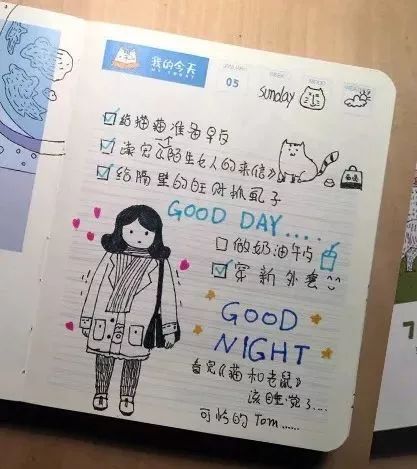 我的今天
MY TODAY
05
sunday
给猫猫准备早
读完《陌生女人的来信》
给隔壁的旺财抓虱子
GOOD DAY....
做奶油
穿新外套
GOOD
NIGHT
看完《猫和老鼠》
该睡觉了....
可怜的Tom......